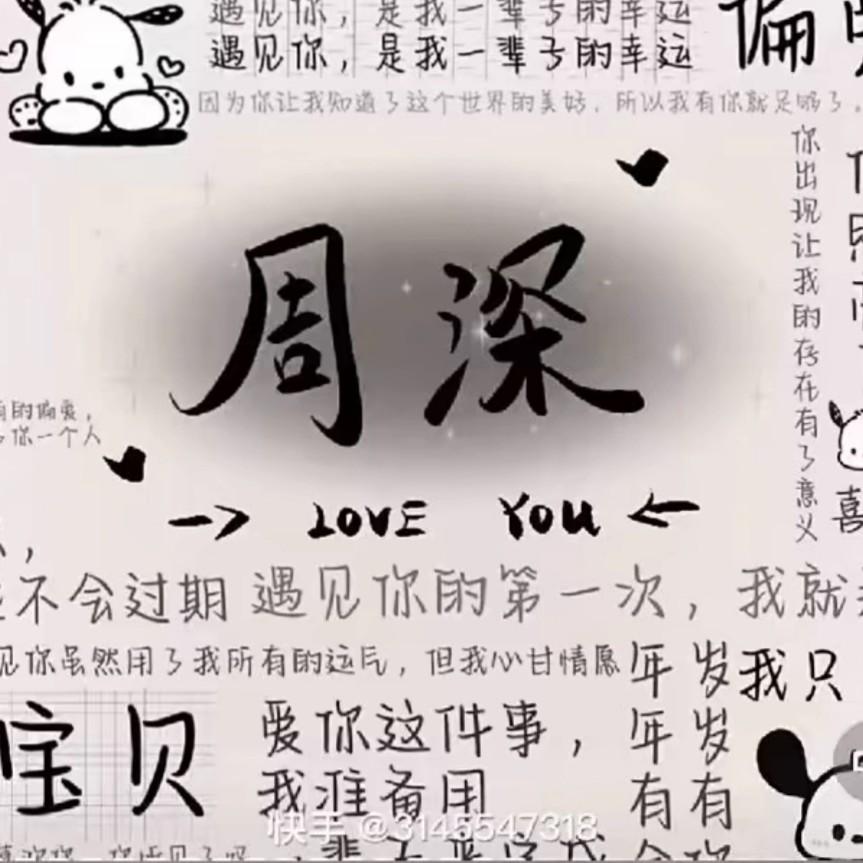 遇见你，是我一辈子的幸运
遇见你，是我一辈子的幸运
偏
因为你让我知道了这个世界的美好，所以我有你就足够了。
你出现让我的存在有了意义
周深
的偏爱，
你一个人
LOVE YOU
喜
不会过期
遇见你的第一次，我就
见你虽然用了我所有的运气，但我心甘情愿
年岁
年岁
有有
我只
宝贝
爱你这件事，
我准备用
快手 @3145547318